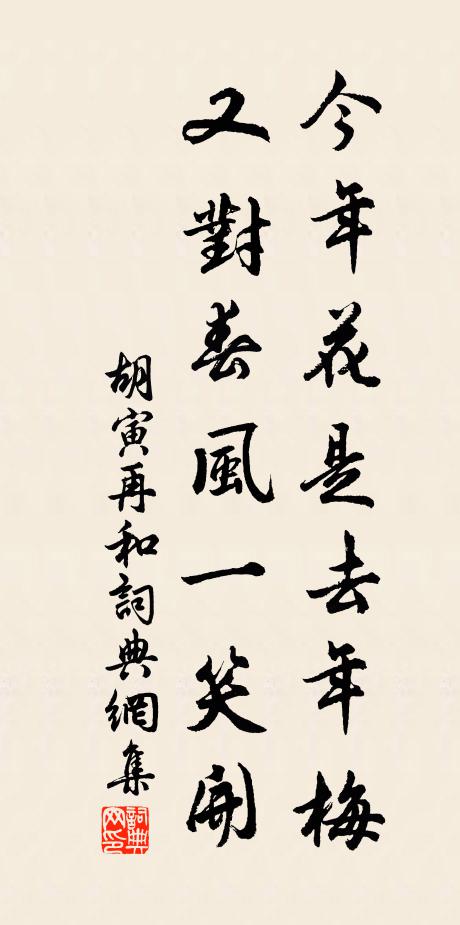 今年花是去年梅
又對春風一笑開
胡寅再和詞典網集
詞典网印